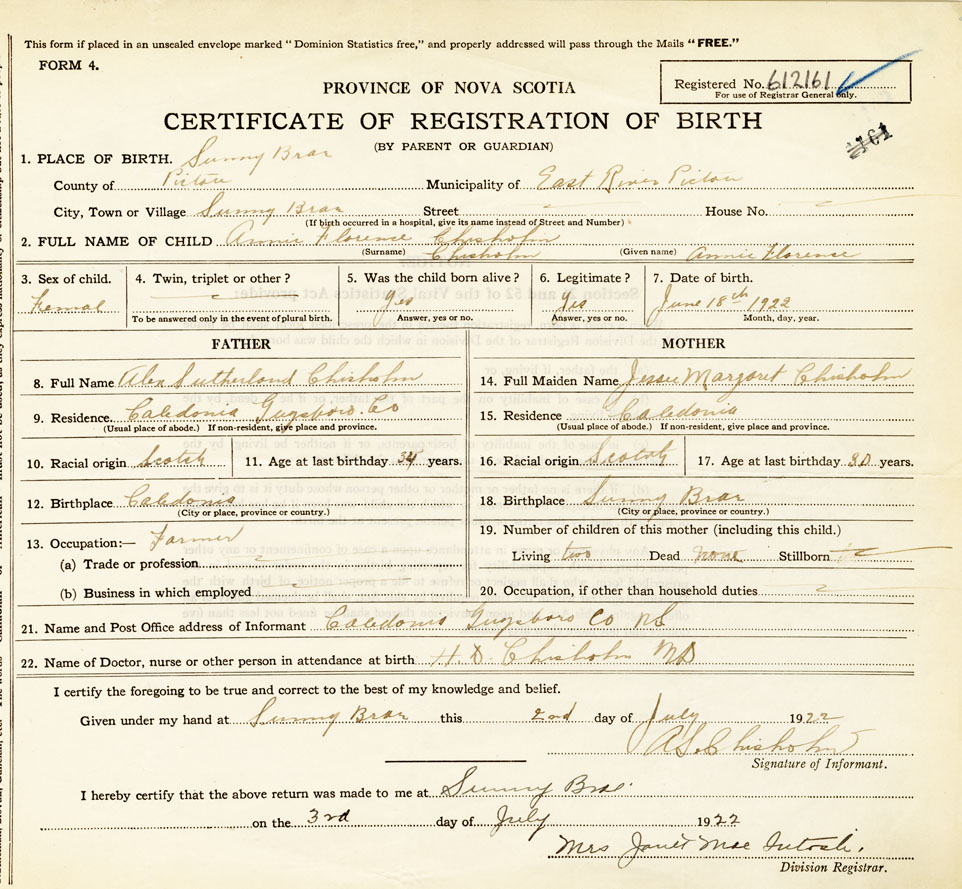 This form if placed in an unsealed envelope marked "Dominion Statistics free," and properly addressed will pass through the Mails "FREE."
FORM 4.
Registered No. 612161
For use of Registrar General only.
PROVINCE OF NOVA SCOTIA
CERTIFICATE OF REGISTRATION OF BIRTH
(BY PARENT OR GUARDIAN)
1. PLACE OF BIRTH. Sunny Brae
County of Pictou Municipality of East River Pictou
City, Town or Village Sunny Brae Street House No.
(If birth occurred in a hospital, give its name instead of Street and Number)
2. FULL NAME OF CHILD Annie Florence Chisholm
(Surname) Chisholm (Given name) Annie Florence
3. Sex of child. 4. Twin, triplet or other? 5. Was the child born alive? 6. Legitimate? 7. Date of birth.
Femal Yes Yes June 18th 1922
To be answered only in the event of plural birth. Answer, yes or no. Answer, yes or no. Month, day, year.
FATHER
8. Full Name Alex Sutherland Chisholm
9. Residence. Caledonia Guysboro. Co
(Usual place of abode.) If non-resident, give place and province.
10. Racial origin Scotch 11. Age at last birthday 34 years.
12. Birthplace Caledonia
(City or place, province or country.)
13. Occupation:— Farmer
(a) Trade or profession
(b) Business in which employed
MOTHER
14. Full Maiden Name Jessie Margaret Chisholm
15. Residence Caledonia
(Usual place of abode.) If non-resident, give place and province.
16. Racial origin Scotch 17. Age at last birthday 30 years.
18. Birthplace Sunny Brae
(City or place, province or country.)
19. Number of children of this mother (including this child.)
Living two Dead none Stillborn
20. Occupation, if other than household duties
21. Name and Post Office address of Informant Caledonia Guysboro Co NS
22. Name of Doctor, nurse or other person in attendance at birth H. D Chisholm MD
I certify the foregoing to be true and correct to the best of my knowledge and belief.
Given under my hand at Sunny Brae this 2nd day of July 1922
A S. Chisholm
Signature of Informant.
I hereby certify that the above return was made to me at Sunny Brae.
on the 3rd day of July 1922
Mrs Janet Mac Intosh.
Division Registrar.